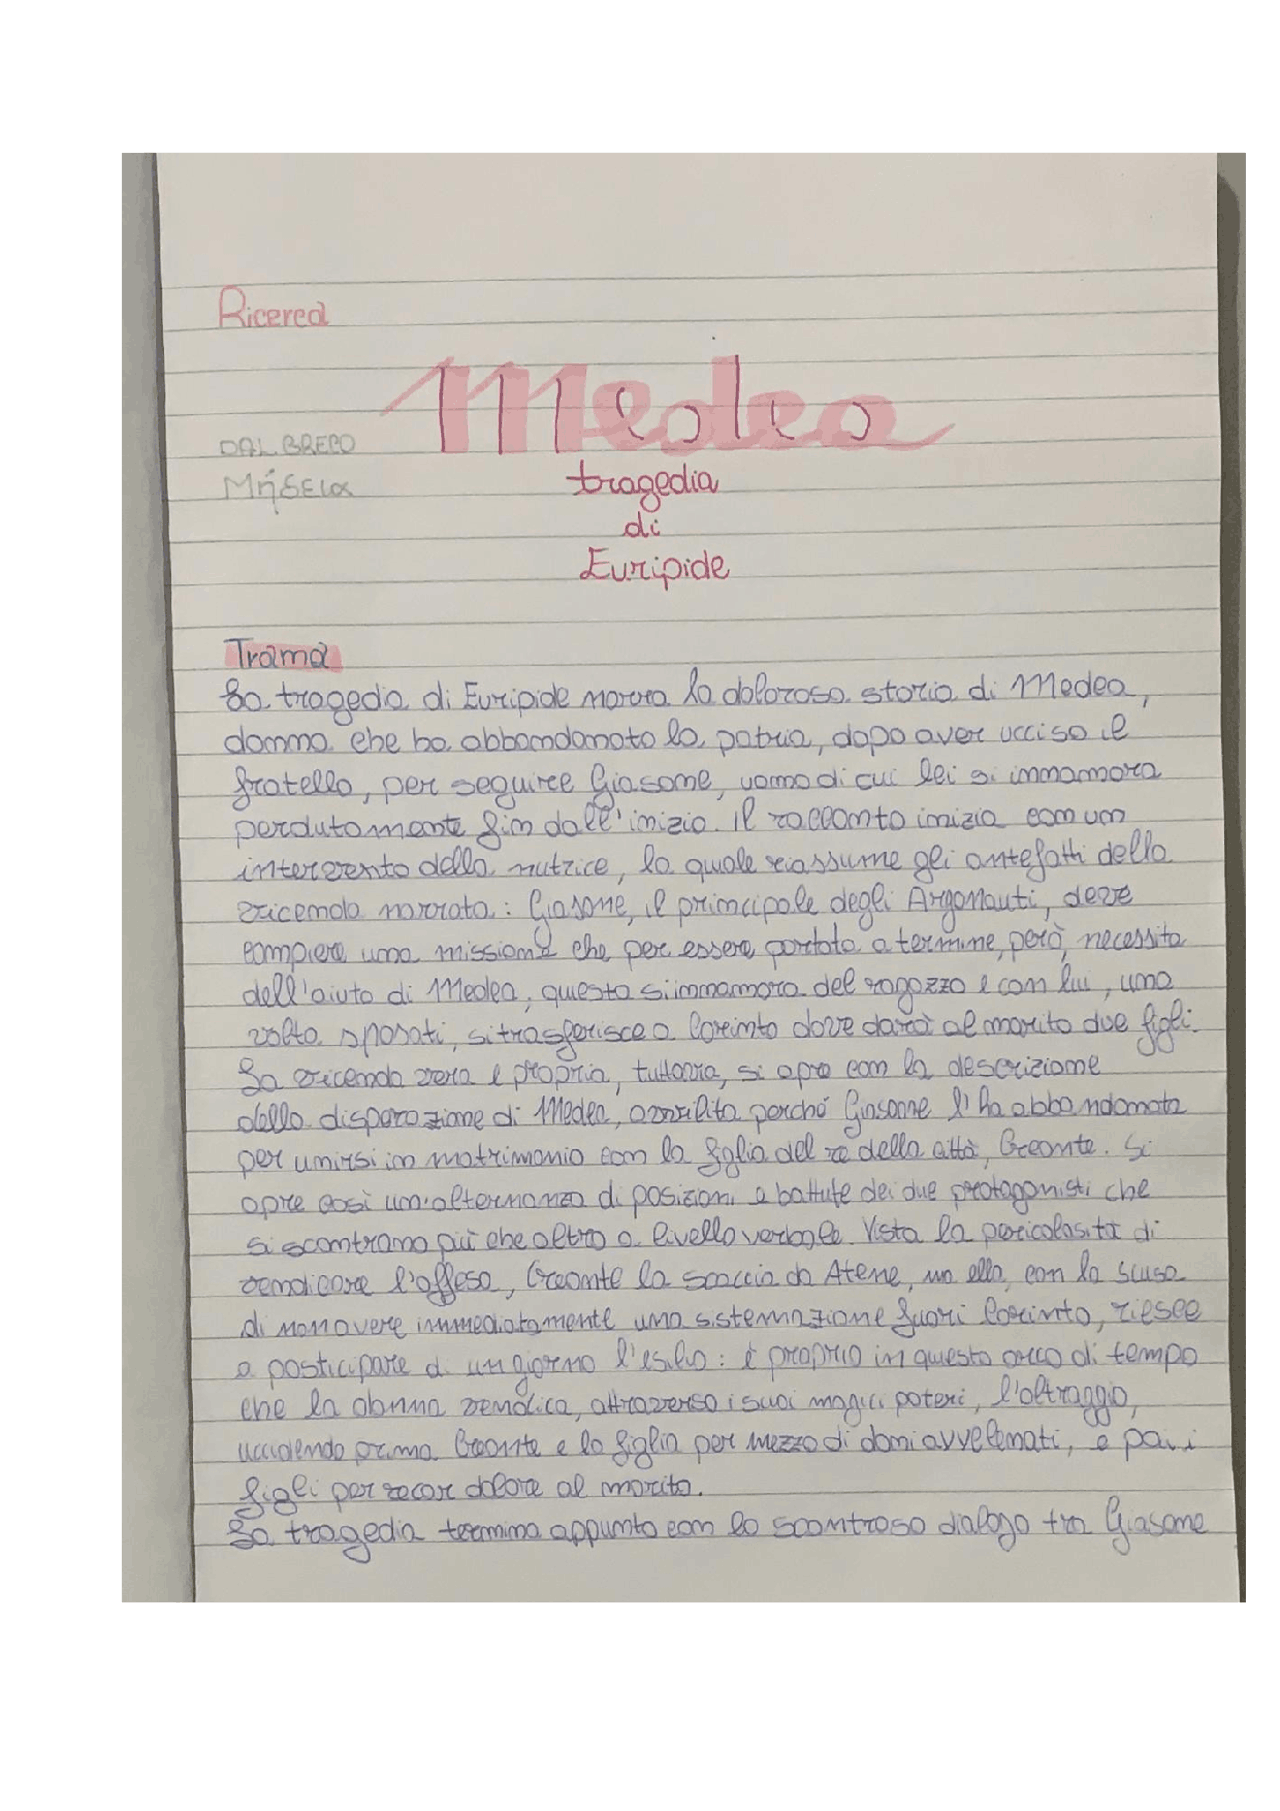 Ricerca
Medea
DAL GRECO
Μήδεια
tragedia
di
Euripide
Trama
La tragedia di Euripide narra la dolorosa storia di Medea,
donna che ha abbandonato la patria, dopo aver ucciso il
fratello, per seguire Giasone, uomo di cui lei si innamora
perdutamente fin dall'inizio. Il racconto inizia con un
intervento della nutrice, la quale riassume gli antefatti della
vicenda narrata: Giasone, il principale degli Argonauti, deve
compiere una missione che per essere portata a termine, però, necessita
dell'aiuto di Medea, questa si innamora del ragazzo e con lui, una
volta sposati, si trasferisce a Corinto dove darà al marito due figli.
La vicenda vera e propria, tuttavia, si apre con la descrizione
della disperazione di Medea, avvilita perché Giasone l'ha abbandonata
per unirsi in matrimonio con la figlia del re della città, Creonte. Si
apre così un'alternanza di posizioni e battute dei due protagonisti che
si scontrano più che altro a livello verbale. Vista la pericolosità di
vendicare l'offesa, Creonte la scaccia da Atene, ma ella, con la scusa
di non avere immediatamente una sistemazione fuori Corinto, riesce
a posticipare di un giorno l'esilio: è proprio in questo arco di tempo
che la donna vendica, attraverso i suoi magici poteri, l'oltraggio,
uccidendo prima Creonte e la figlia per mezzo di doni avvelenati, e poi i
figli per recar dolore al marito.
La tragedia termina appunto con lo scontroso dialogo tra Giasone